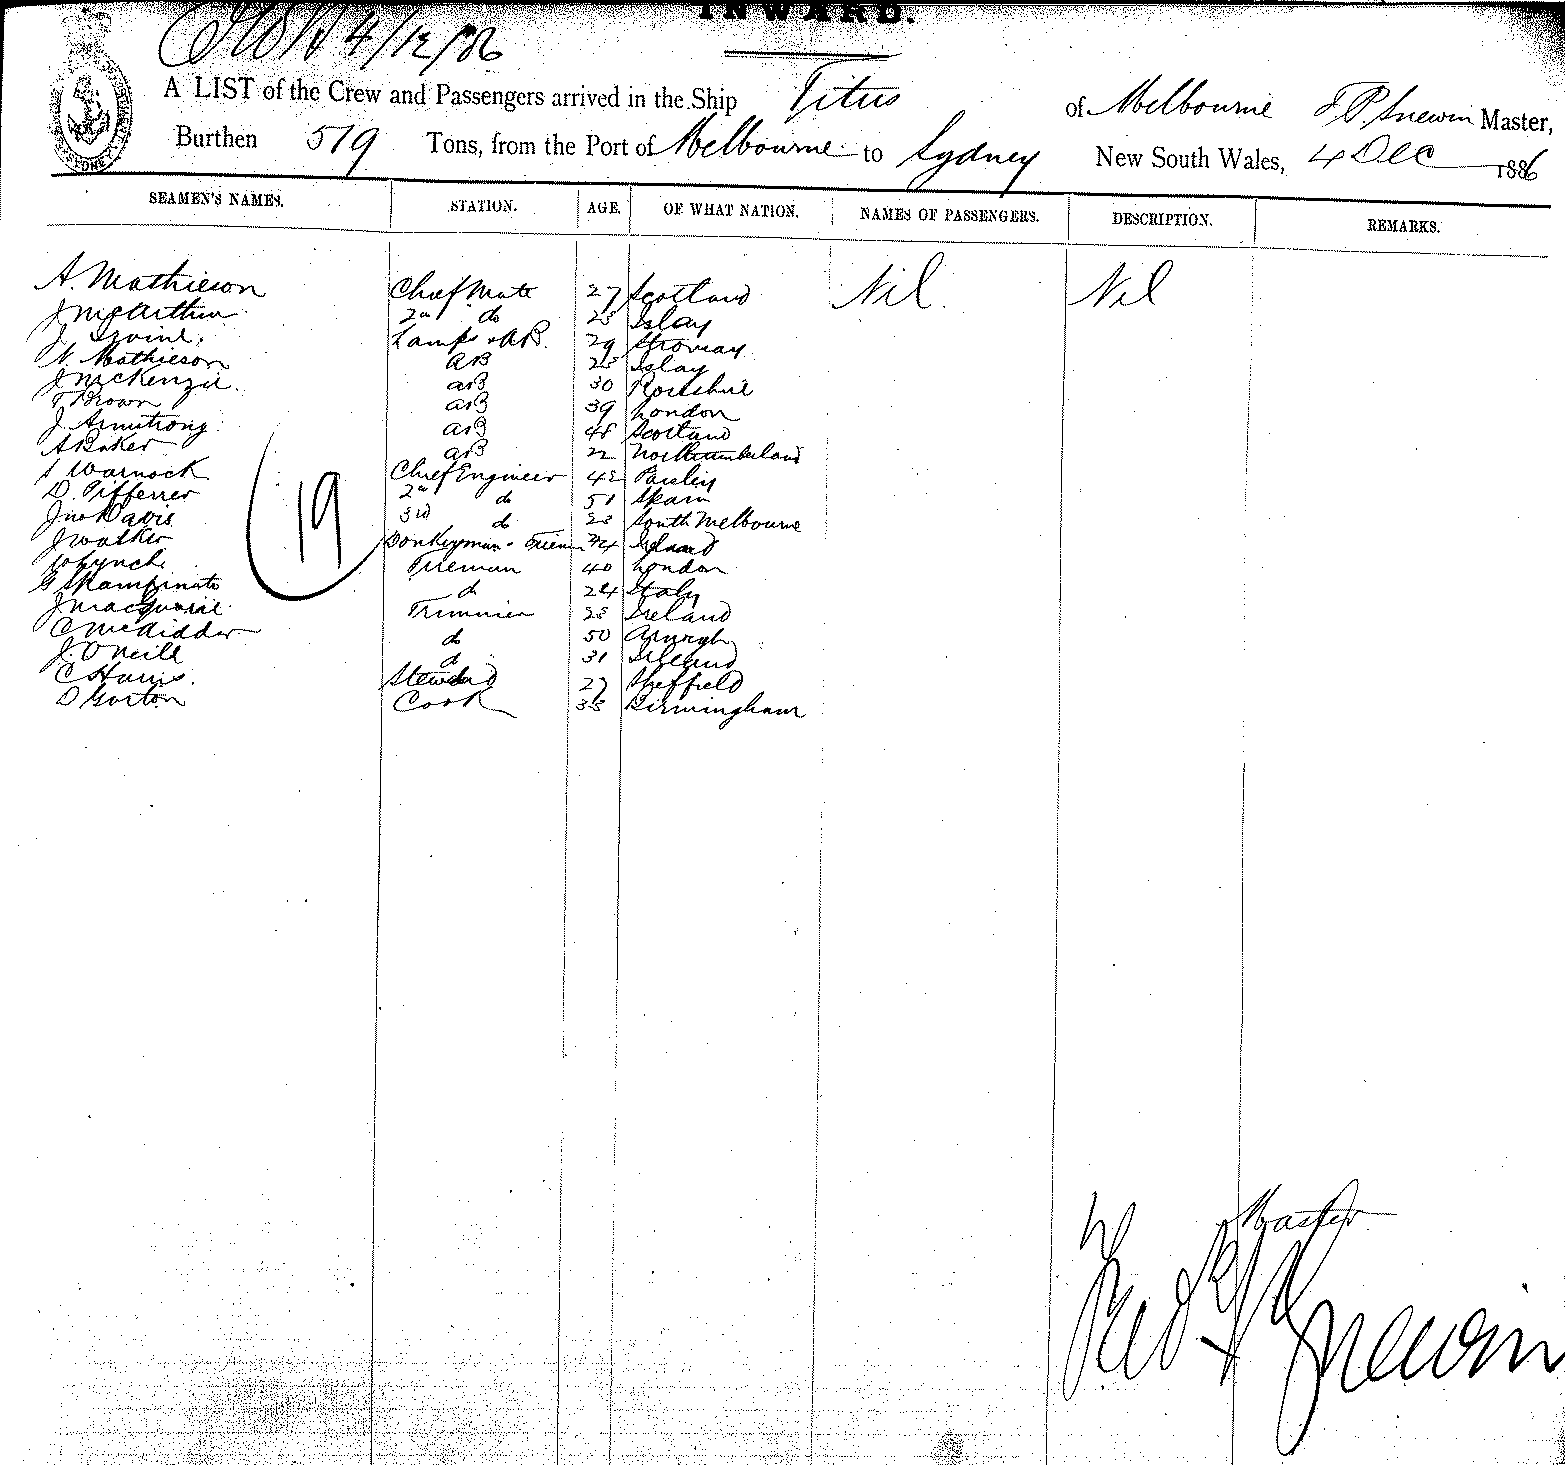 INWARD.
4/12/86
A LIST of the Crew and Passengers arrived in the Ship Titus of Melbourne F P Snewin Master,
Burthen 519 Tons, from the Port of Melbourne to Sydney New South Wales, 4 Dec 1886
SEAMEN'S NAMES. STATION. AGE. OF WHAT NATION. NAMES OF PASSENGERS. DESCRIPTION. REMARKS.
A. Mathieson Chief Mate 27 Scotland Nil Nil
J McArthur 2nd do Islay
J Irvine Lamps & AB 29
N. Mathieson AB Islay
J McKenzie AB 30 Rosshire
T Brown AB 39 London
J. Armstrong AB Scotland
A Baker AB 22 Northumberland
Warnock Chief Engineer 42 Paisley
D. Pifferrer 2nd do 51 Spain
Jno Davis 3rd do South Melbourne
J Walker Donkeyman & Fireman Ireland
Lynch Fireman 40 London
G do 24 Italy
J Macquarie Trimmer Ireland
C do 50 Armagh
J. O'Neill do 31 Ireland
C Harris. Steward 27 Sheffield
D Gorton Cook Birmingham
19
Master
Fred P Snewin